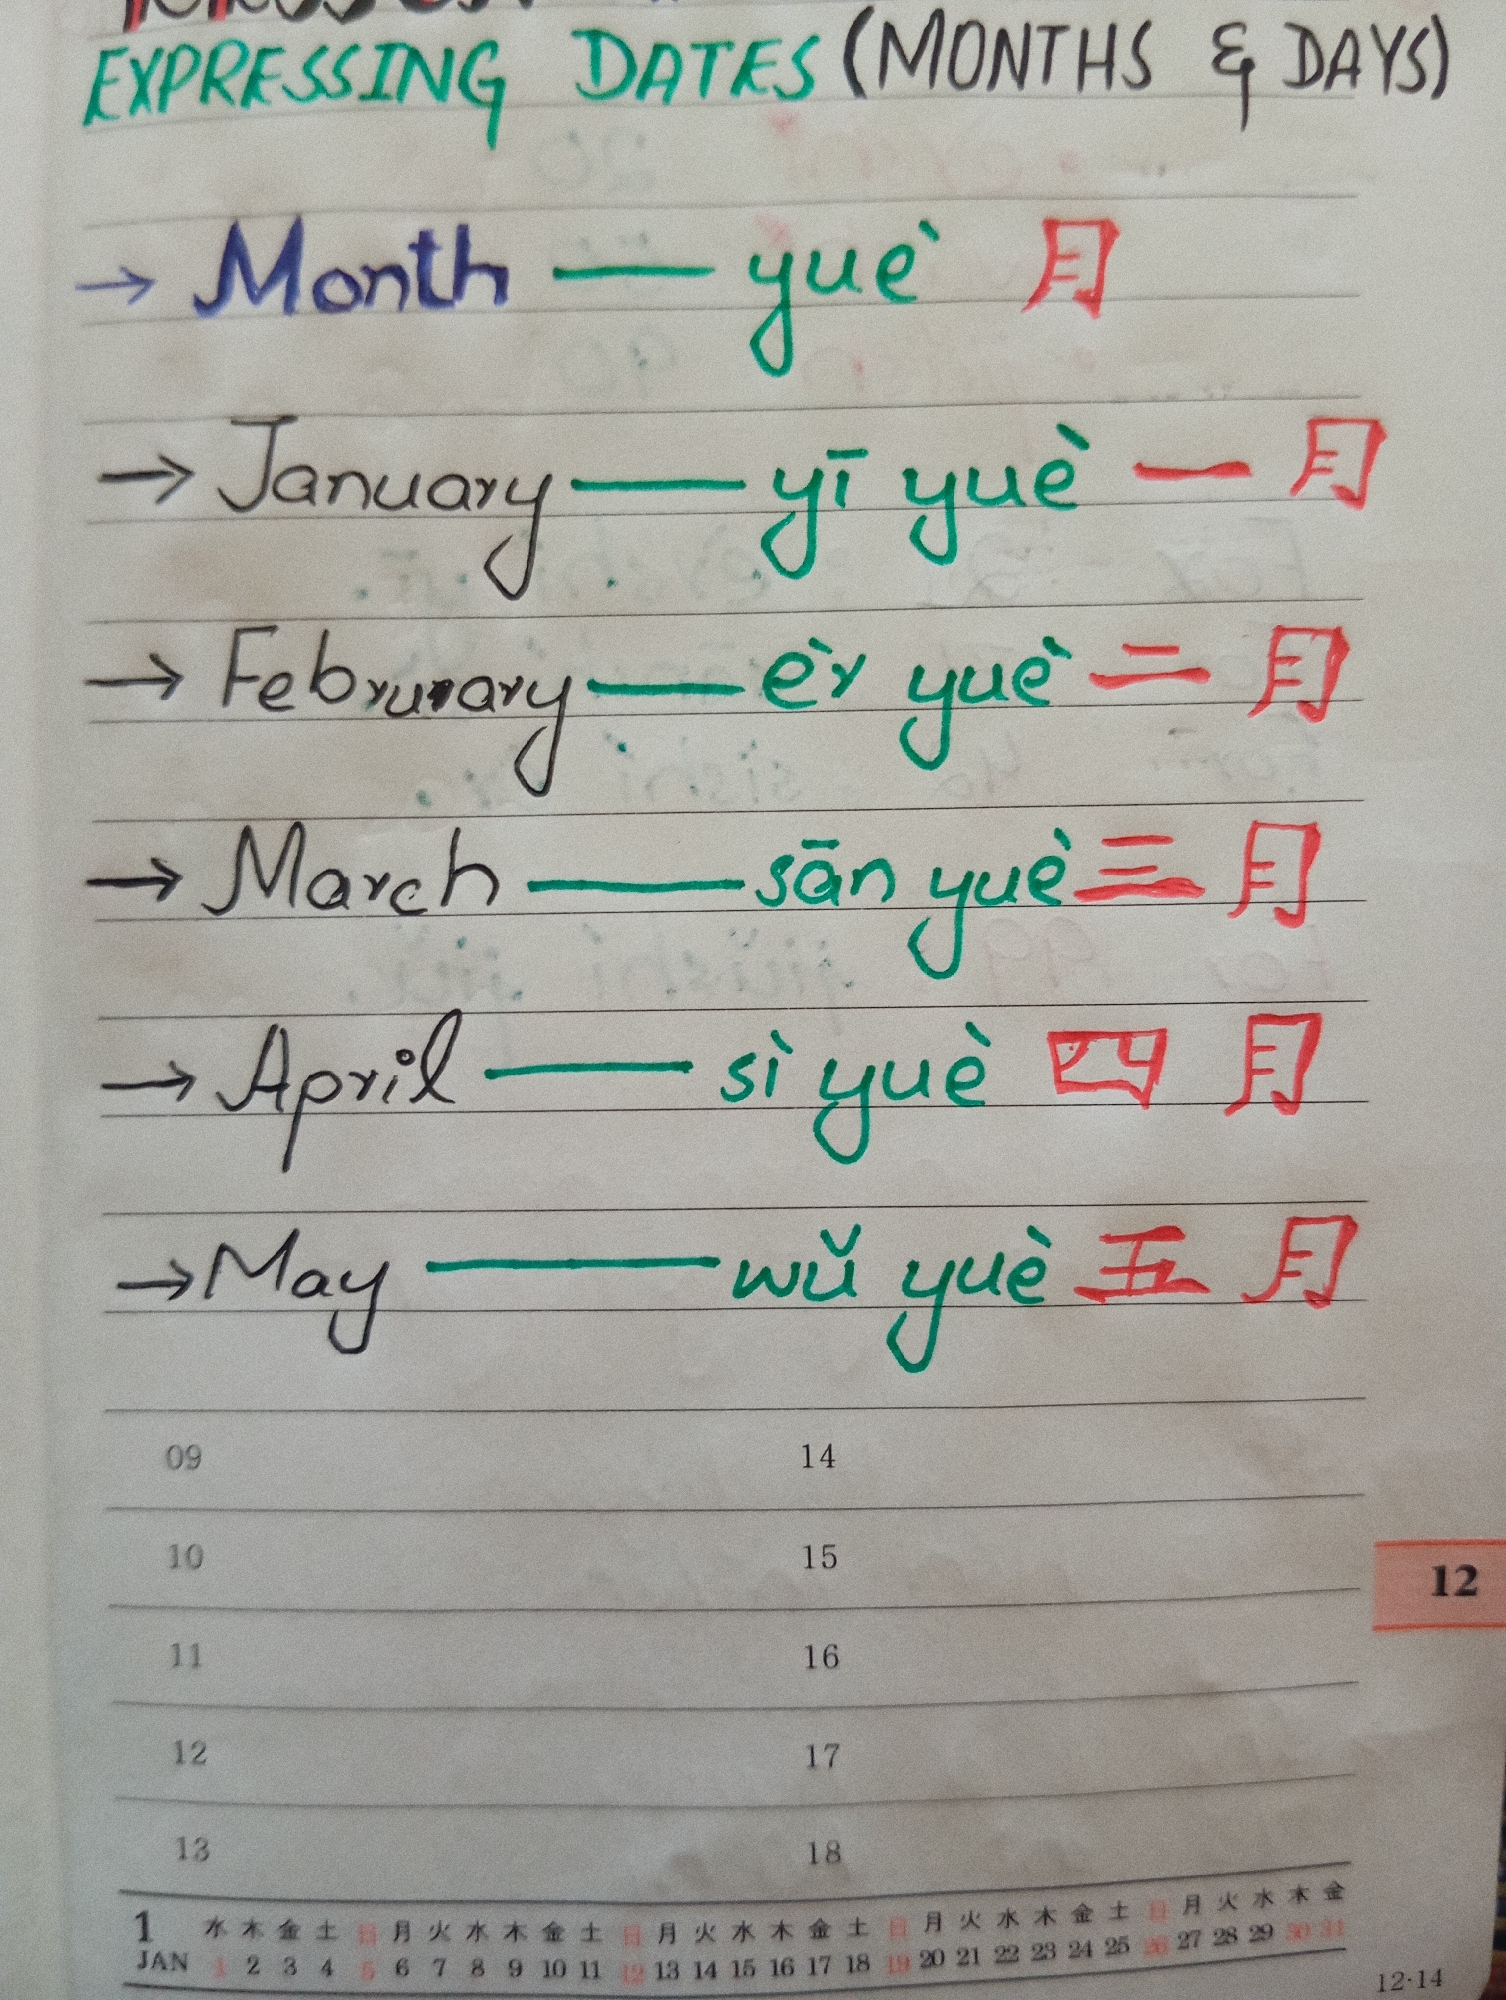 EXPRESSING DATES (MONTHS & DAYS)
→ Month — yuè 月
→ January — yī yuè 一月
→ February — èr yuè 二月
→ March — sān yuè 三月
→ April — sì yuè 四月
→ May — wǔ yuè 五月
09 14
10 15
12
11 16
12 17
13 18
1 水 木 金 土 日 月 火 水 木 金 土 日 月 火 水 木 金 土 日 月 火 水 木 金 土 日 月 火 水 木 金
JAN 1 2 3 4 5 6 7 8 9 10 11 12 13 14 15 16 17 18 19 20 21 22 23 24 25 26 27 28 29 30 31
12·14